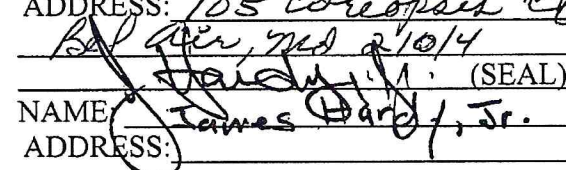 ADDRESS: 105 Coreopsis
Bel Air, Md 21014
Hardy, Jr. (SEAL)
NAME James Hardy, Jr.
ADDRESS: